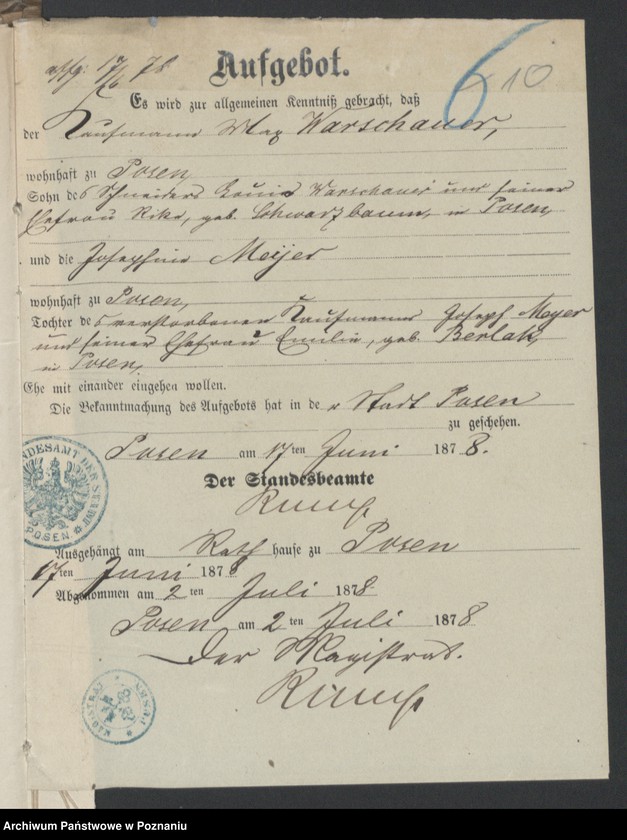 17/6 78
Aufgebot.
6 10
Es wird zur allgemeinen Kenntniß gebracht, daß
der Kaufmann Max Warschauer,
wohnhaft zu Posen
Sohn des Schneiders Louis Warschauer und seiner
Ehefrau Rike, geb. Schwarzbaum, in Posen,
und die Josephine Meijer
wohnhaft zu Posen,
Tochter des verstorbenen Kaufmanns Joseph Meyer
und seiner Ehefrau Emilie, geb. Berlak,
in Posen,
Ehe mit einander eingehen wollen.
Die Bekanntmachung des Aufgebots hat in der Stadt Posen
zu geschehen.
Posen am 17ten Juni 1878.
Der Standesbeamte
STANDESAMT DER STADT POSEN
Ausgehängt am Rathhause zu Posen
17ten Juni 1878
Abgenommen am 2ten Juli 1878
Posen am 2ten Juli 1878
Der Magistrat.
MAGISTRAT POSEN
Archiwum Państwowe w Poznaniu